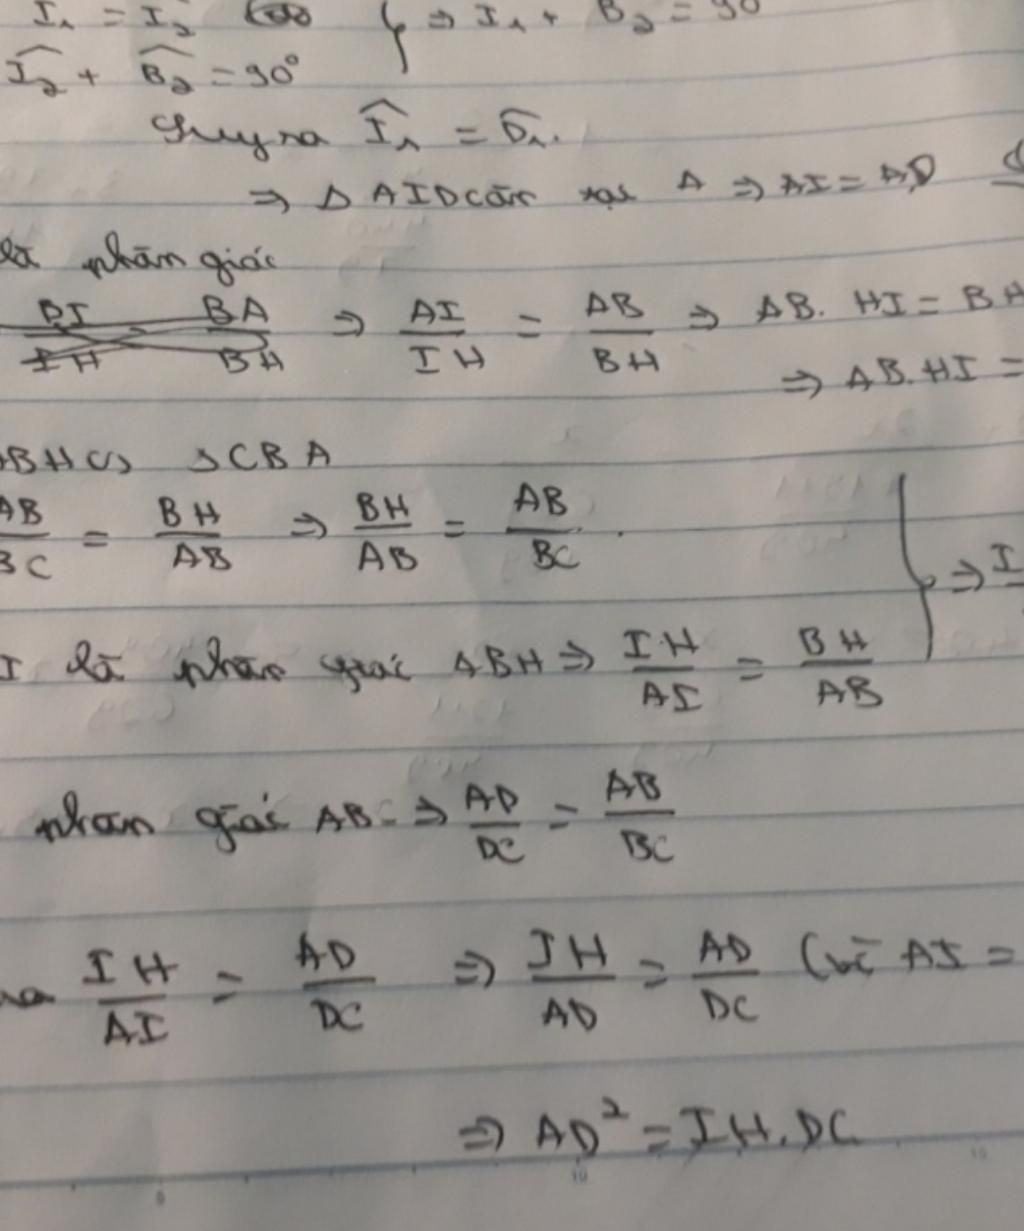 I₁ = I₂ } ⇒ I₁ + B₂ = 90
I₂ + B₂ = 90°
Suy ra I₁ = D₁.
⇒ Δ AID cân tại A ⇒ AI = AD
là phân giác
BI/IH BA/BH ⇒ AI/IH = AB/BH ⇒ AB. HI = BH
⇒ AB. HI =
ABH ∽ Δ CBA
AB/BC = BH/AB ⇒ BH/AB = AB/BC.
I là phân giác ABH ⇒ IH/AI = BH/AB } ⇒ I
phân giác AB ⇒ AD/DC = AB/BC
ra IH/AI = AD/DC ⇒ IH/AD = AD/DC (vì AI =
⇒ AD² = IH. DC